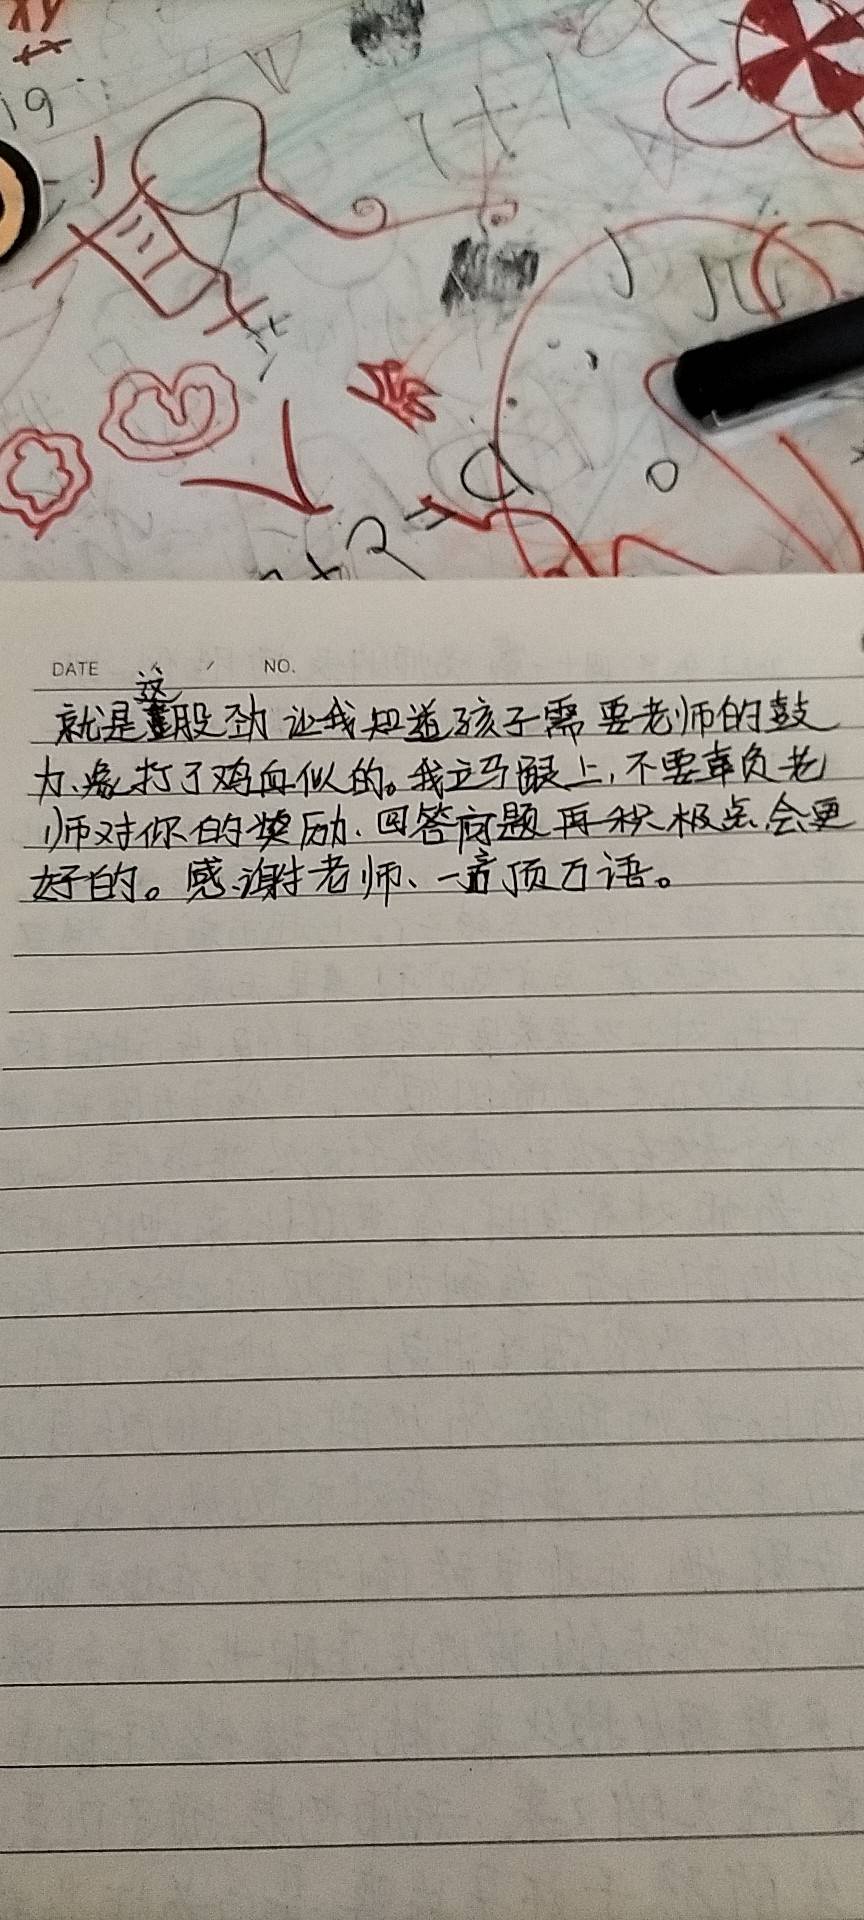 19
7+1
+2=
DATE NO.
就是这股劲让我知道孩子需要老师的鼓
力、像打了鸡血似的。我立马跟上,不要辜负老
师对你的奖励、回答问题再积极点、会更
好的。感谢老师、一言顶万语。